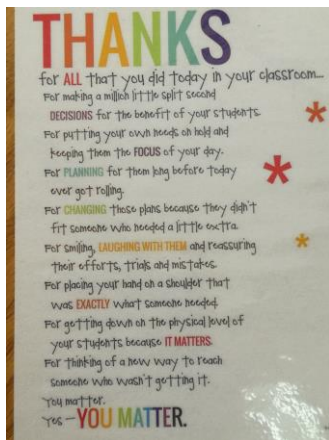 THANKS
for ALL that you did today in your classroom...
For making a million little split second
DECISIONS for the benefit of your students.
For putting your own needs on hold and
keeping them the FOCUS of your day.
For PLANNING for them long before today
ever got rolling.
For CHANGING those plans because they didn't
fit someone who needed a little extra.
For smiling, LAUGHING WITH THEM and reassuring
their efforts, trials and mistakes.
For placing your hand on a shoulder that
was EXACTLY what someone needed.
For getting down on the physical level of
your students because IT MATTERS.
For thinking of a new way to reach
someone who wasn't getting it.
You matter.
Yes - YOU MATTER.